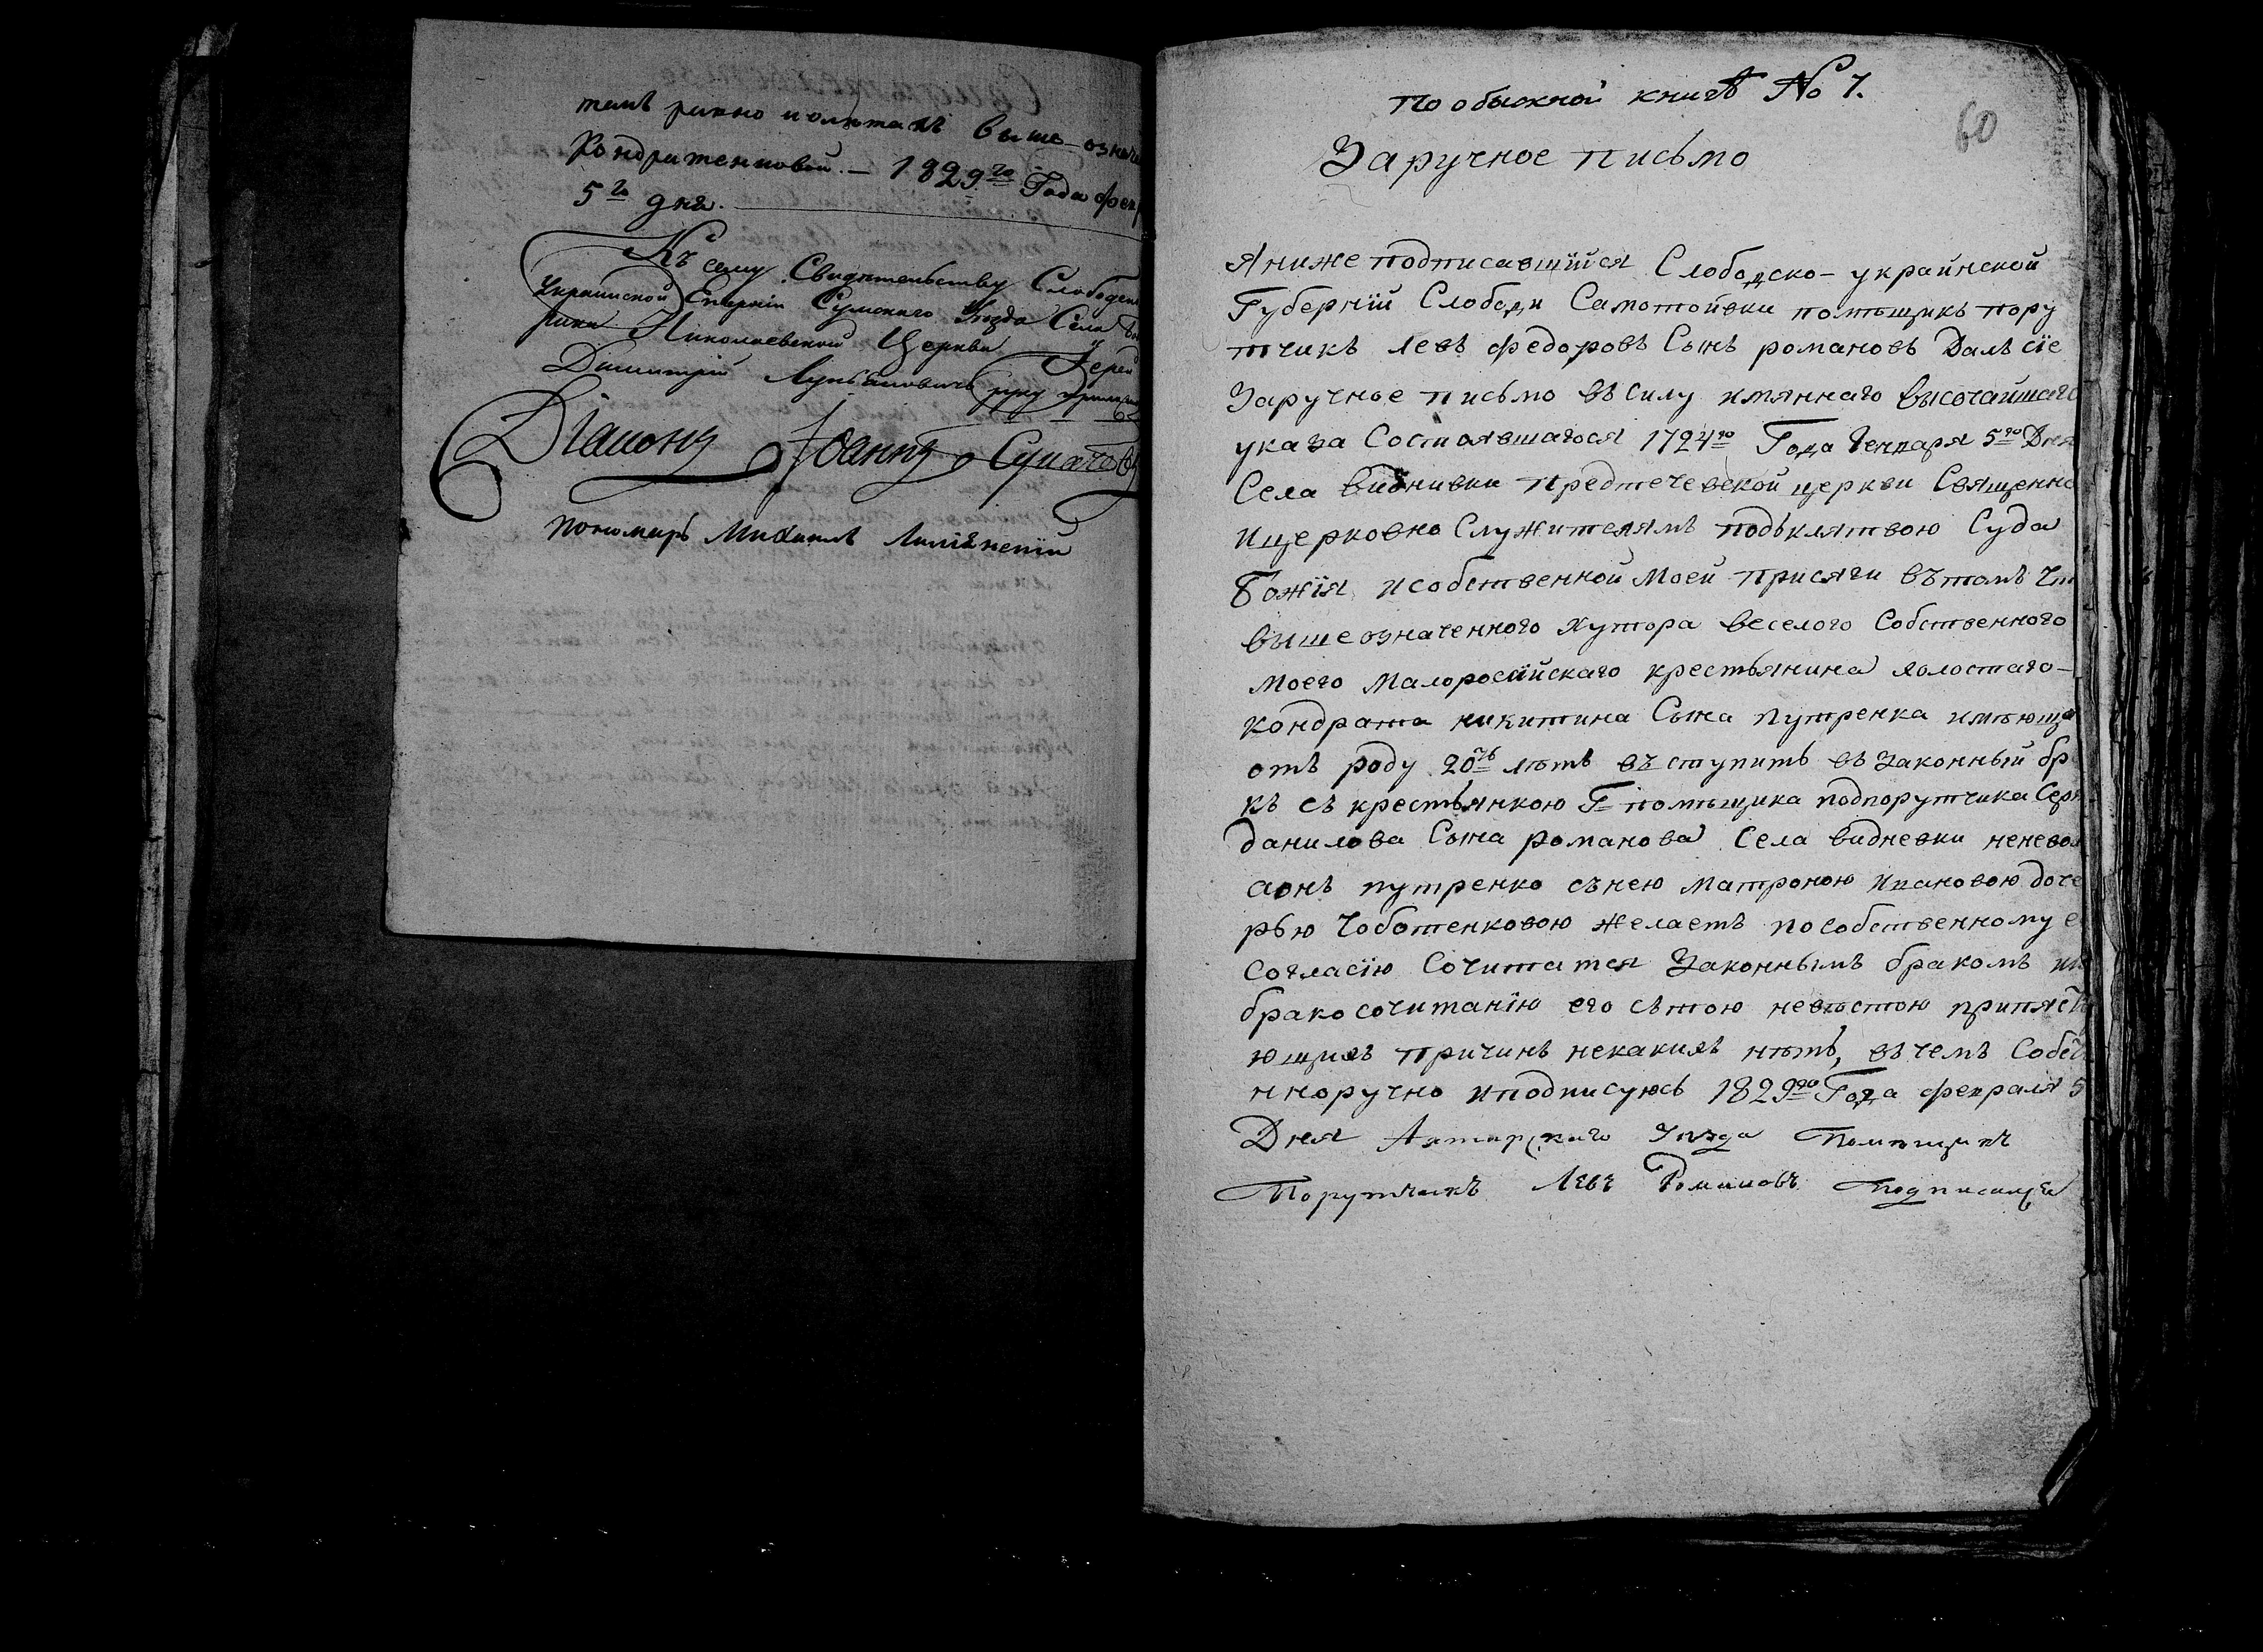 темъ равно и олѣтахъ выше-означе
Кондратенковой. — 1829го Года фев
5го дня.
Къ сему Свидѣтельству Слободск
Украинской Епархіи Сумскаго Уѣзда Села
Николаевской Церкви Іерей
Димитрій руку прилож
Діаконъ Іоаннъ Сукачевъ
пономарь Михаилъ
по обыскной книгѣ № 7.
60
Заручное письмо
Я ниже подписавшїйся Слободско-украинской
Губернїй Слободи Самотойвки помѣщикъ пору
тчикъ левъ федоровъ Сынъ романовъ Далъ сїе
Заручное письмо въ силу имяннаго высочаишаго
указа Состоявшагося 1724го Года Генваря 5го Дня
Села Виднивки предтечевской церкви Священно
и церковно Служителямъ подъ клятвою Суда
Божїя и собственной моей присяги въ томъ чт
выше означенного хутора веселого Собственного
моего малоросїйскаго крестьянина холостаго-
кондрата никитина Сына путренка имѣюща
отъ роду 20ть лѣтъ въступить въ законный бр
къ съ крестьянкою Г= помѣщика подпорутчика Серг
данилова Сына романова Села видневки неневол
а онъ путренко съ нею матроною ивановою доче
рью Чоботенковою желаетъ по собственному е
согласїю Сочитатся Законнымъ бракомъ и к
бракосочитанїю его сътою невѣстою припятст
ющихъ причинъ некакихъ нѣтъ, въ чемъ Собст
нноручно и подписуюсь 1829го Года февраля 5
Дня Ахтырскаго Уѣзда Помѣщикъ
Порутчикъ Левъ Романовъ подписался